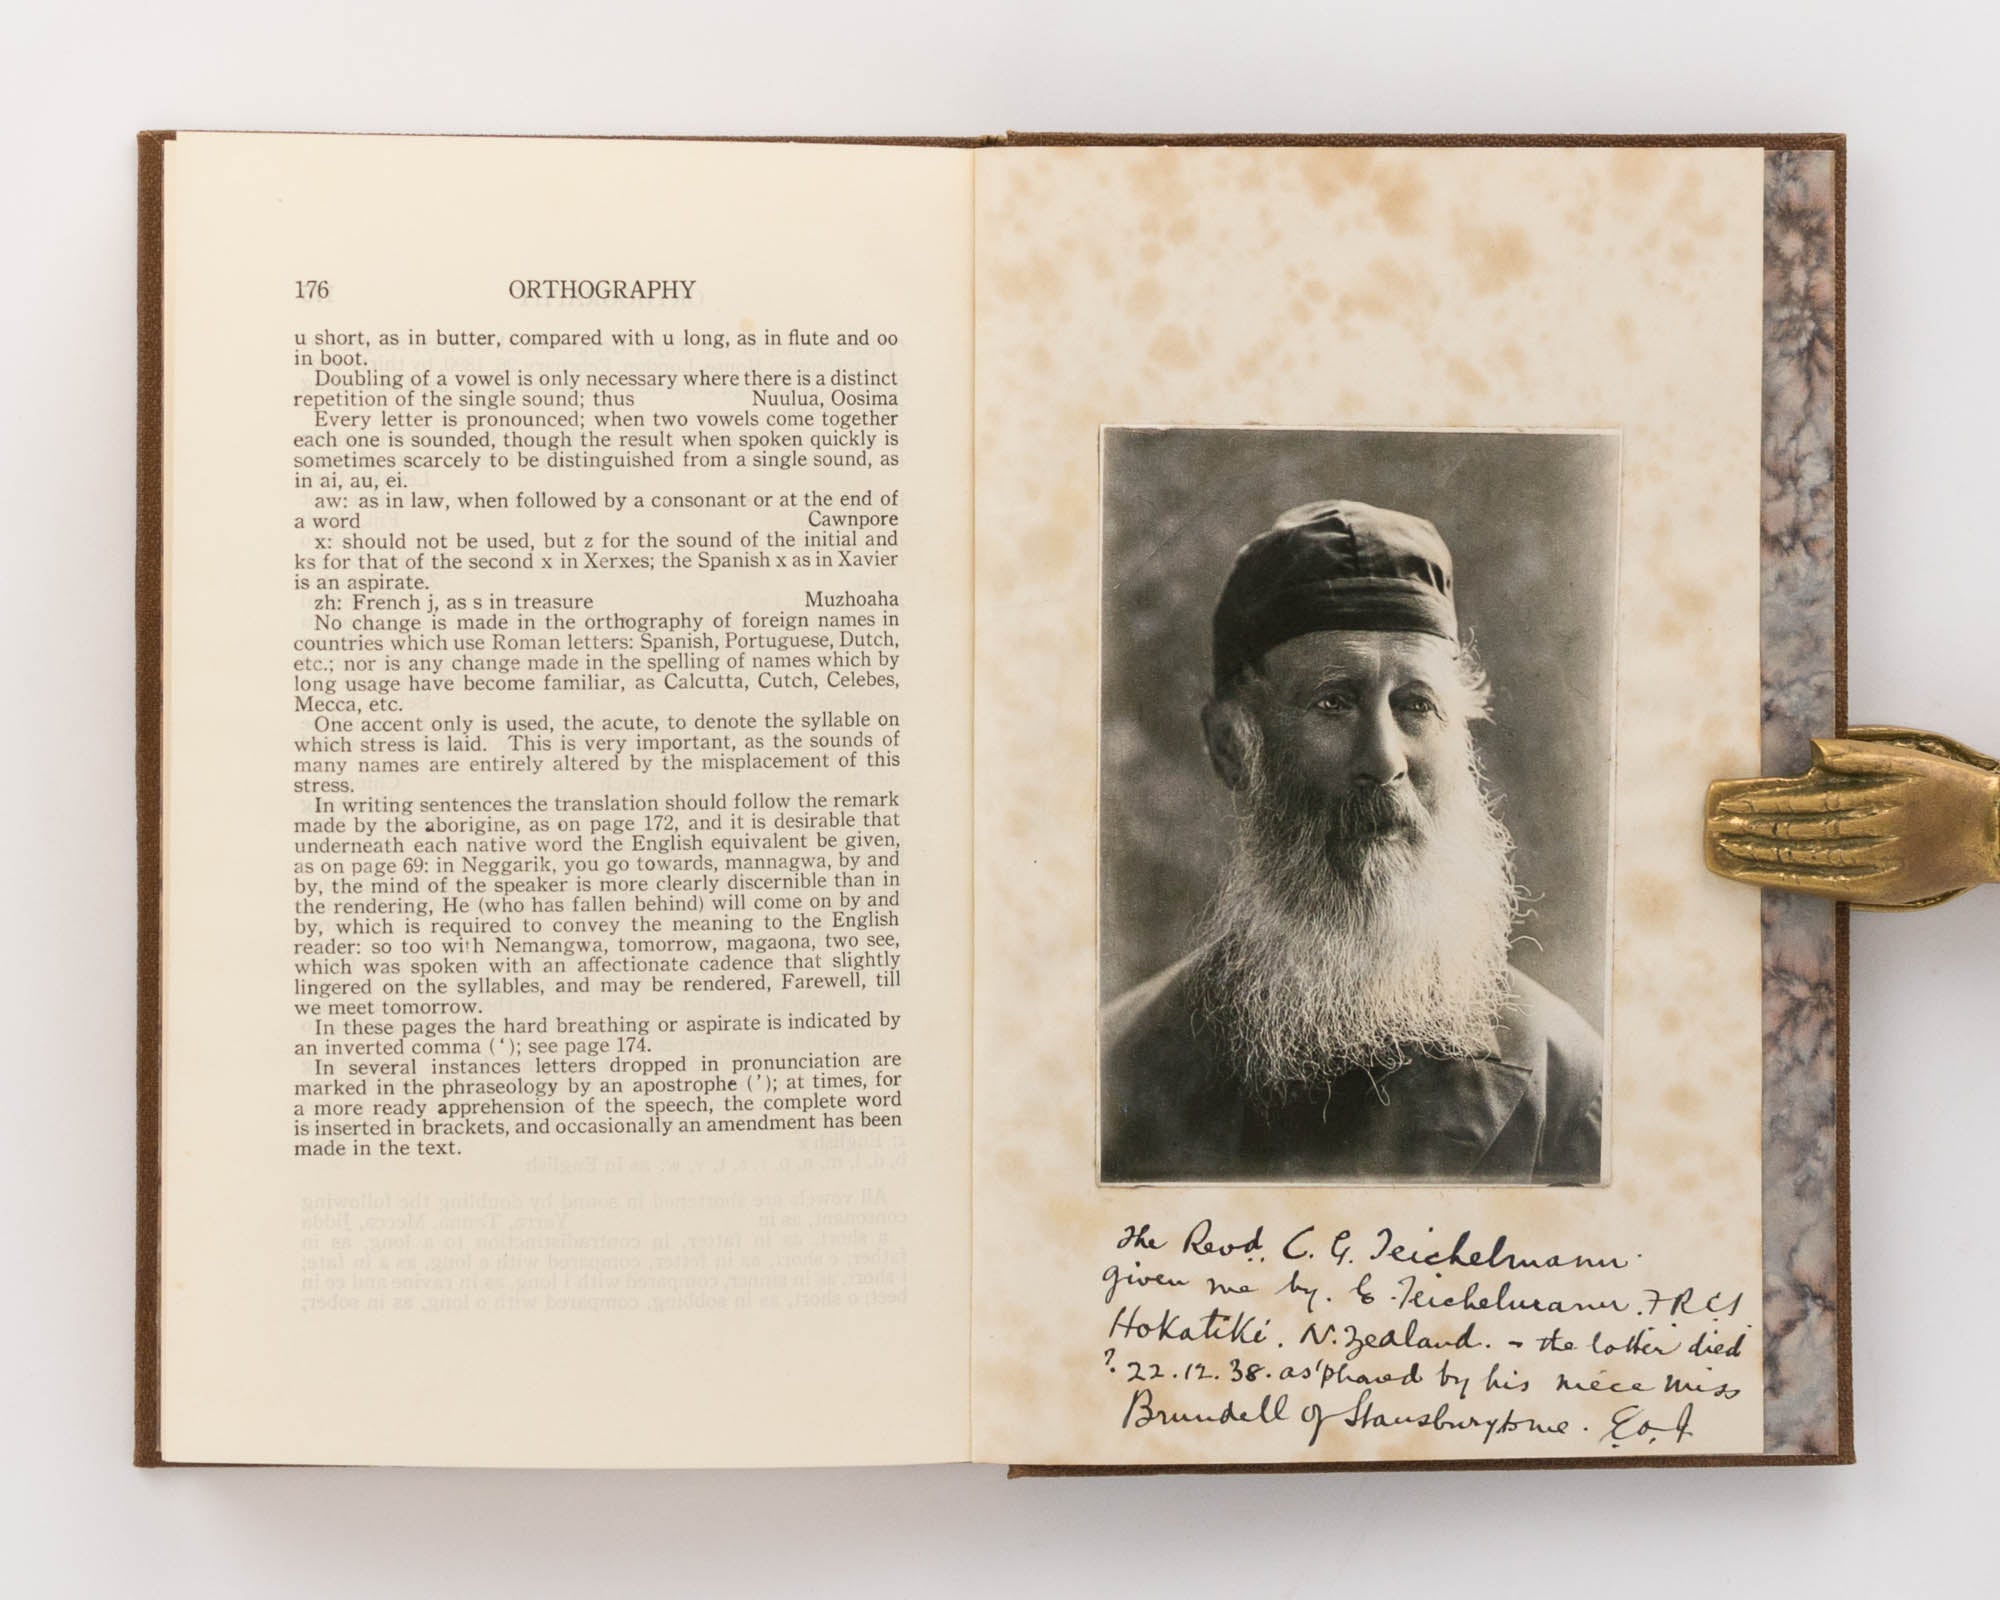 176 ORTHOGRAPHY
u short, as in butter, compared with u long, as in flute and oo
in boot.
Doubling of a vowel is only necessary where there is a distinct
repetition of the single sound; thus Nuulua, Oosima
Every letter is pronounced; when two vowels come together
each one is sounded, though the result when spoken quickly is
sometimes scarcely to be distinguished from a single sound, as
in ai, au, ei.
aw: as in law, when followed by a consonant or at the end of
a word Cawnpore
x: should not be used, but z for the sound of the initial and
ks for that of the second x in Xerxes; the Spanish x as in Xavier
is an aspirate.
zh: French j, as s in treasure Muzhoaha
No change is made in the orthography of foreign names in
countries which use Roman letters: Spanish, Portuguese, Dutch,
etc.; nor is any change made in the spelling of names which by
long usage have become familiar, as Calcutta, Cutch, Celebes,
Mecca, etc.
One accent only is used, the acute, to denote the syllable on
which stress is laid. This is very important, as the sounds of
many names are entirely altered by the misplacement of this
stress.
In writing sentences the translation should follow the remark
made by the aborigine, as on page 172, and it is desirable that
underneath each native word the English equivalent be given,
as on page 69: in Neggarik, you go towards, mannagwa, by and
by, the mind of the speaker is more clearly discernible than in
the rendering, He (who has fallen behind) will come on by and
by, which is required to convey the meaning to the English
reader: so too with Nemangwa, tomorrow, magaona, two see,
which was spoken with an affectionate cadence that slightly
lingered on the syllables, and may be rendered, Farewell, till
we meet tomorrow.
In these pages the hard breathing or aspirate is indicated by
an inverted comma (‘); see page 174.
In several instances letters dropped in pronunciation are
marked in the phraseology by an apostrophe (’); at times, for
a more ready apprehension of the speech, the complete word
is inserted in brackets, and occasionally an amendment has been
made in the text.
The Revd. C. G. Teichelmann
given me by. E. Teichelmann. FRCS
Hokatiki. N. Zealand. - the latter died
? 22.12.38. as 'phoned by his niece Miss
Brundell of Stansbury